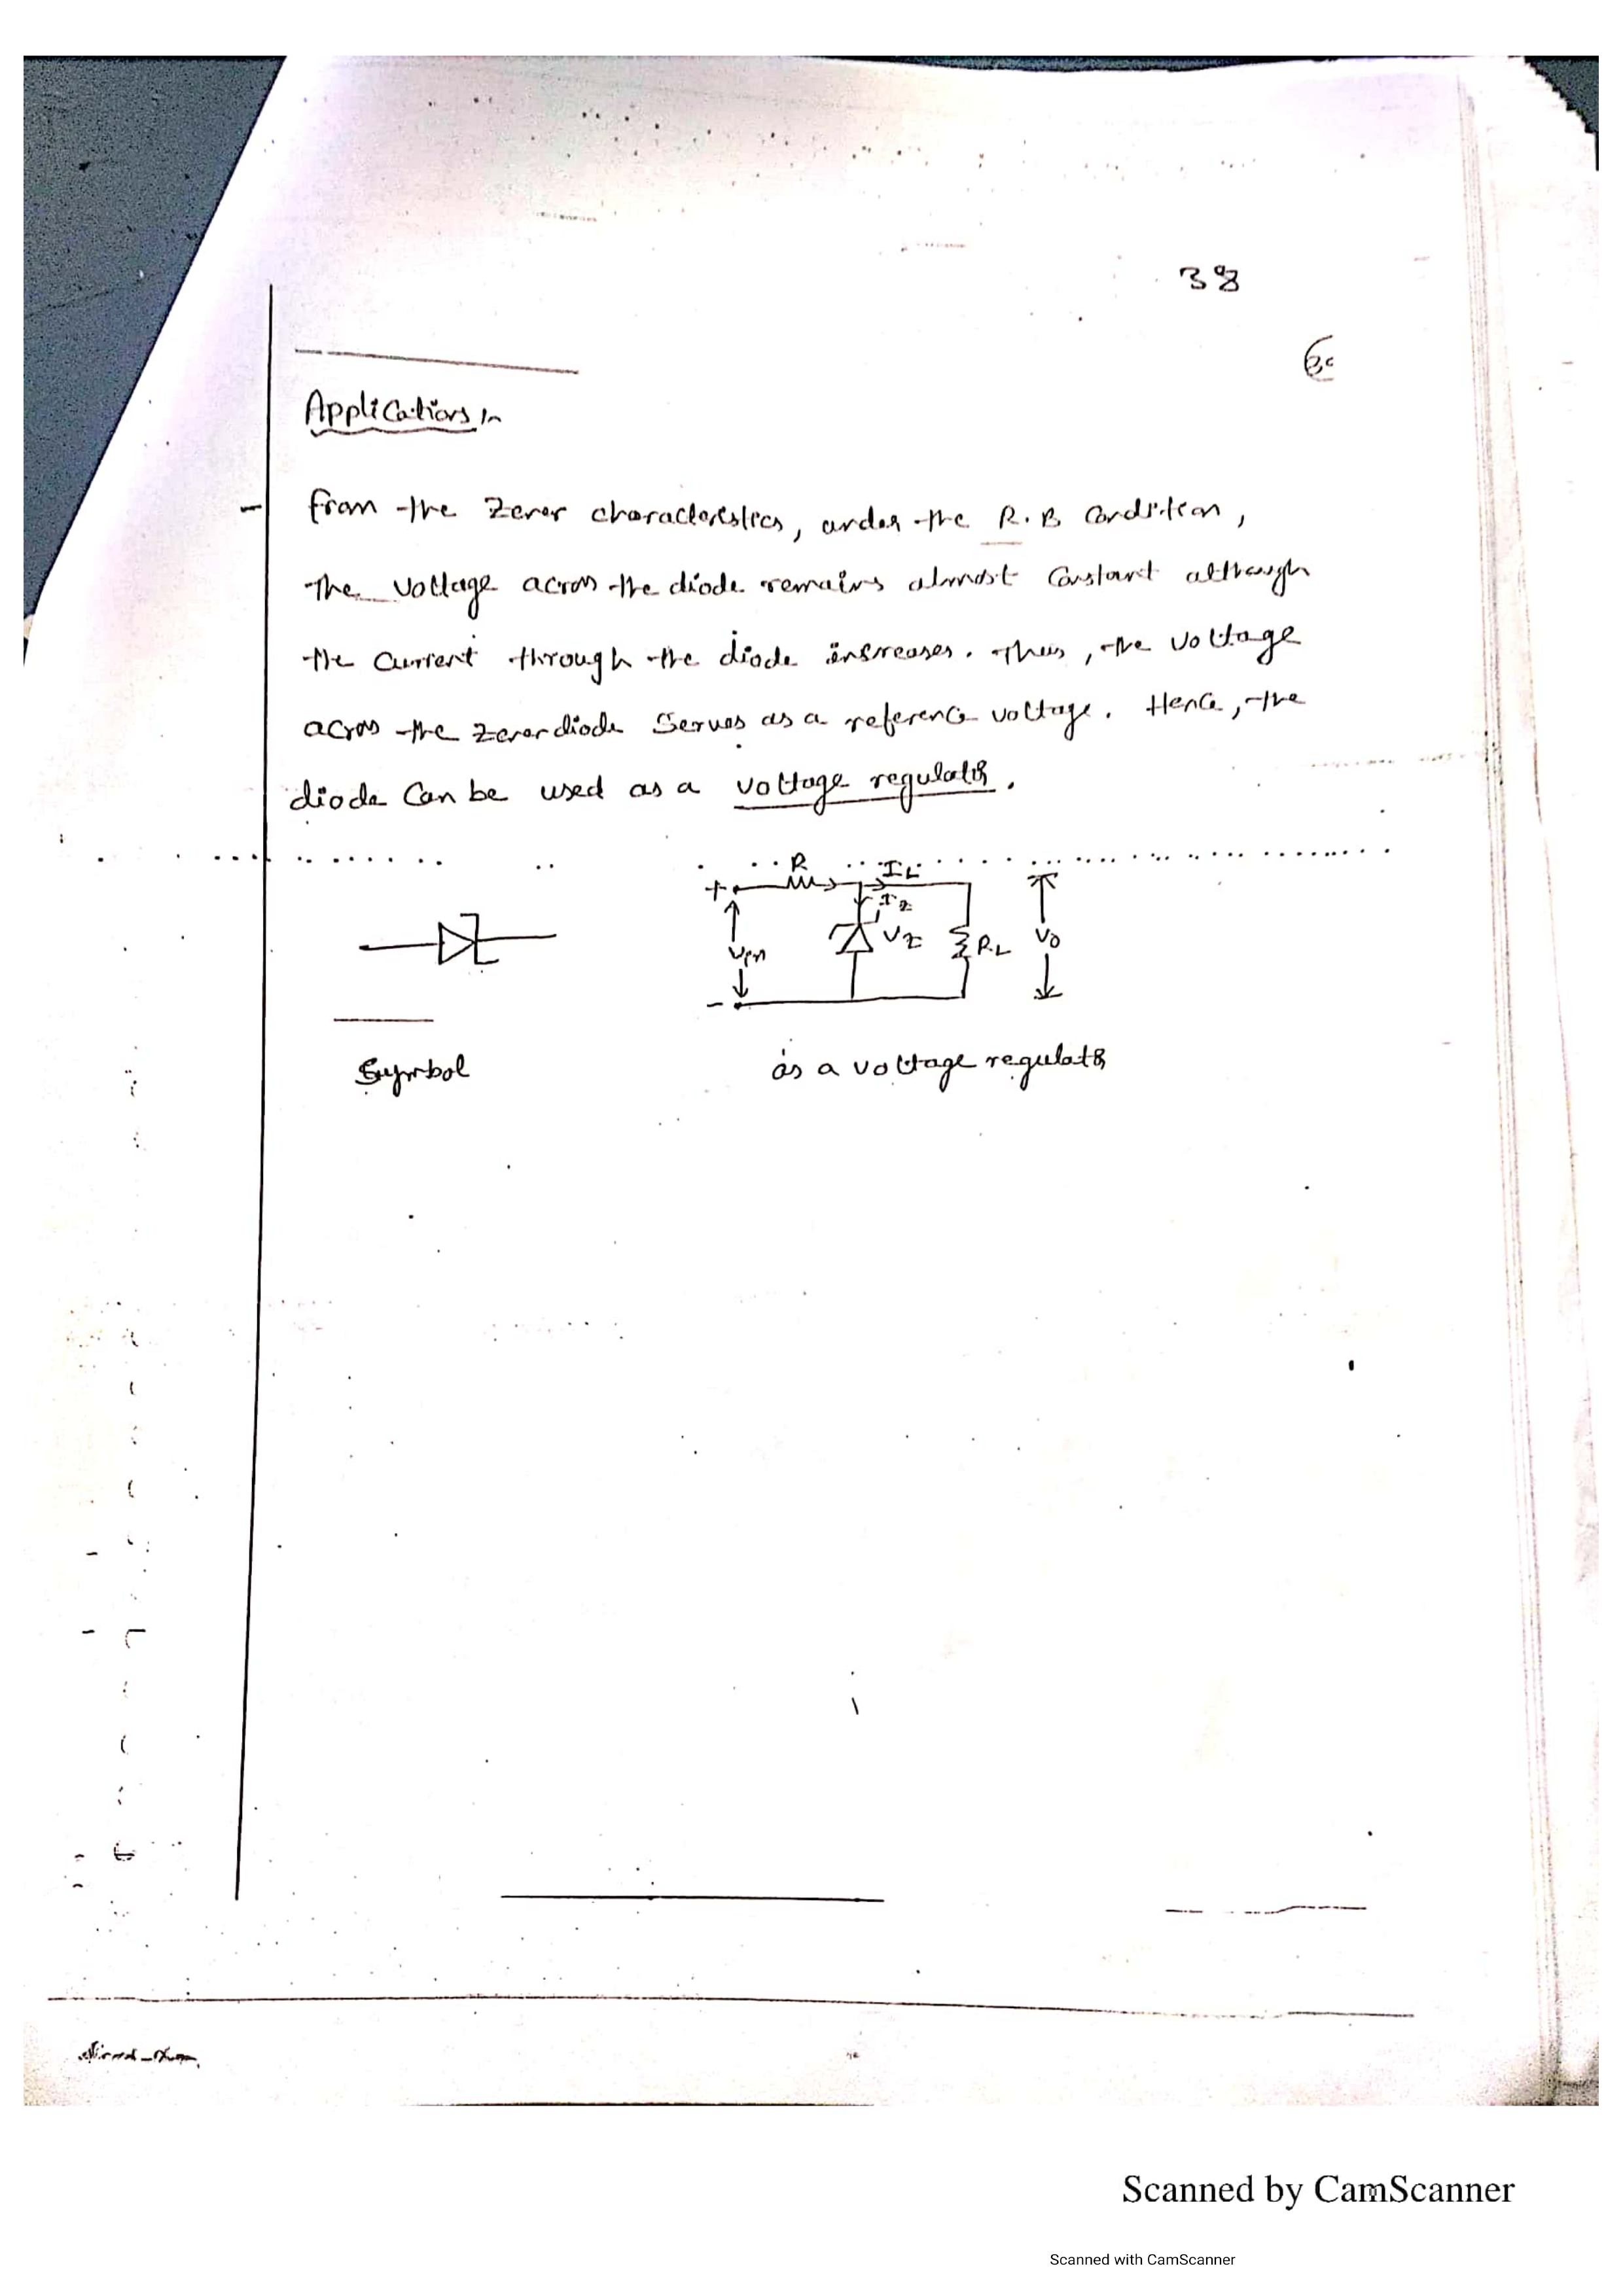 38
Applications :-
- From the Zener characteristics, under the R.B Condition,
the voltage across the diode remains almost Constant although
the Current through the diode increases. Thus, the voltage
across the zener diode Serves as a reference voltage. Hence, the
diode Can be used as a voltage regulator.
R IL
+
Iz
Vin Vz RL Vo
-
Symbol as a voltage regulator
Scanned by CamScanner
Scanned with CamScanner